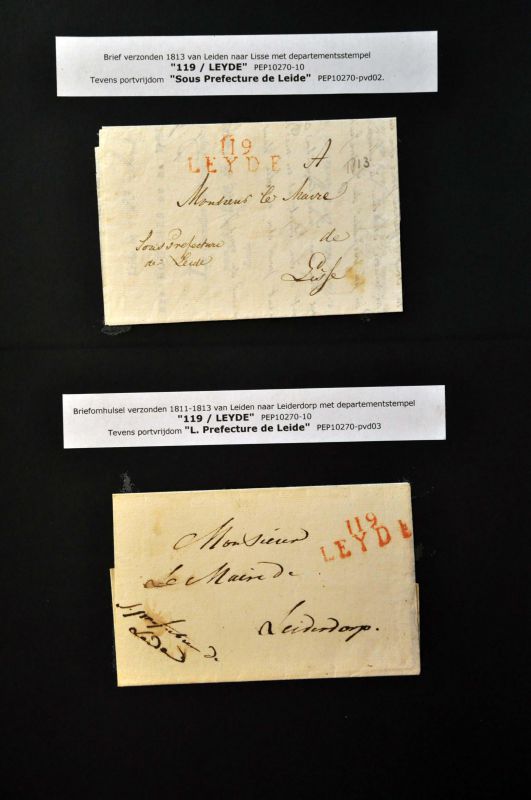 Brief verzonden 1813 van Leiden naar Lisse met departementsstempel
"119 / LEYDE" PEP10270-10
Tevens portvrijdom "Sous Prefecture de Leide" PEP10270-pvd02.
119
LEYDE
A
1813
Monsieur le Maire
de
Lisse
Sous Prefecture
de Leide
Briefomhulsel verzonden 1811-1813 van Leiden naar Leiderdorp met departementstempel
"119 / LEYDE" PEP10270-10
Tevens portvrijdom "L. Prefecture de Leide" PEP10270-pvd03
119
LEYDE
Monsieur
Le Maire de
Leiderdorp.
de
Leide